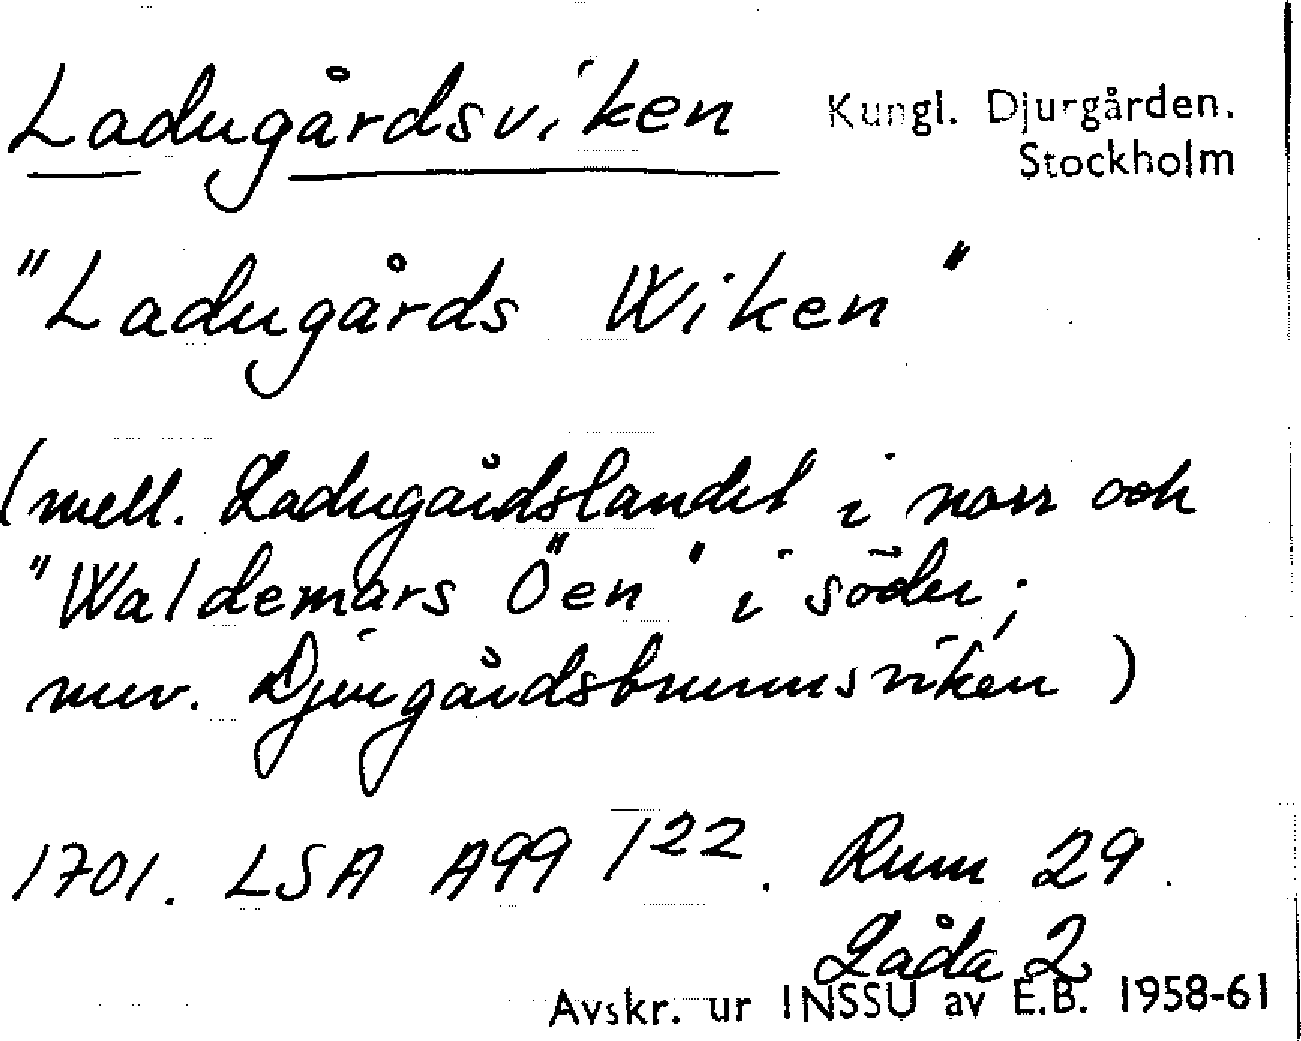 Ladugårdsviken Kungl. Djurgården.
Stockholm
"Ladugårds Wiken"
(mell. Ladugårdslandet i norr och
"Waldemars Öen" i söder;
nuv. Djurgårdsbrunnsviken)
1701. LSA A99 122. Rum 29.
Låda 2
Avskr. ur INSSU av E.B. 1958-61